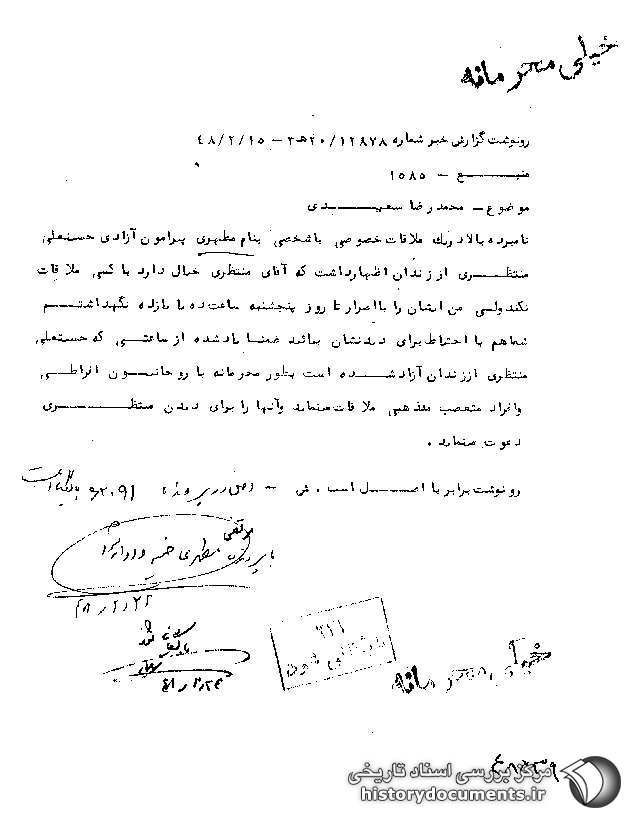 خیلی محرمانه
رونوشت گزارش خبر شماره ۱۲۸۷۸/ ۲۰ه۳ – ۴۸/۲/۱۵
منبع – ۱۵۸۵
موضوع – محمدرضا سعیدی
نامبرده بالا در یک ملاقات خصوصی با شخصی بنام مطهری پیرامون آزادی حسنعلی
منتظری از زندان اظهارداشت که آقای منتظری خیال دارد با کسی ملاقات
نکند ولی من ایشان را با اصرار تا روز پنجشنبه ساعت ده یا یازده نگهداشتم
شما هم با احتیاط برای دیدنشان بیائید ضمنا یادشده از ساعتی که حسنعلی
منتظری از زندان آزاد شده است بطور محرمانه با روحانیون افراطی
و افراد متعصب مذهبی ملاقات مینماید و آنها را برای دیدن منتظری
دعوت مینماید .
رونوشت برابر با اصل است . ش – اصل در پرونده ۹۲۰۹۱ بایگانی است
مرتضی
مطهری ضمیمه و
۴۸/۲/۲۲
۴۸/۲/۲۴
۳۲۱
بایگانی شود
خیلی محرمانه
مرکز بررسی اسناد تاریخی
historydocuments.ir